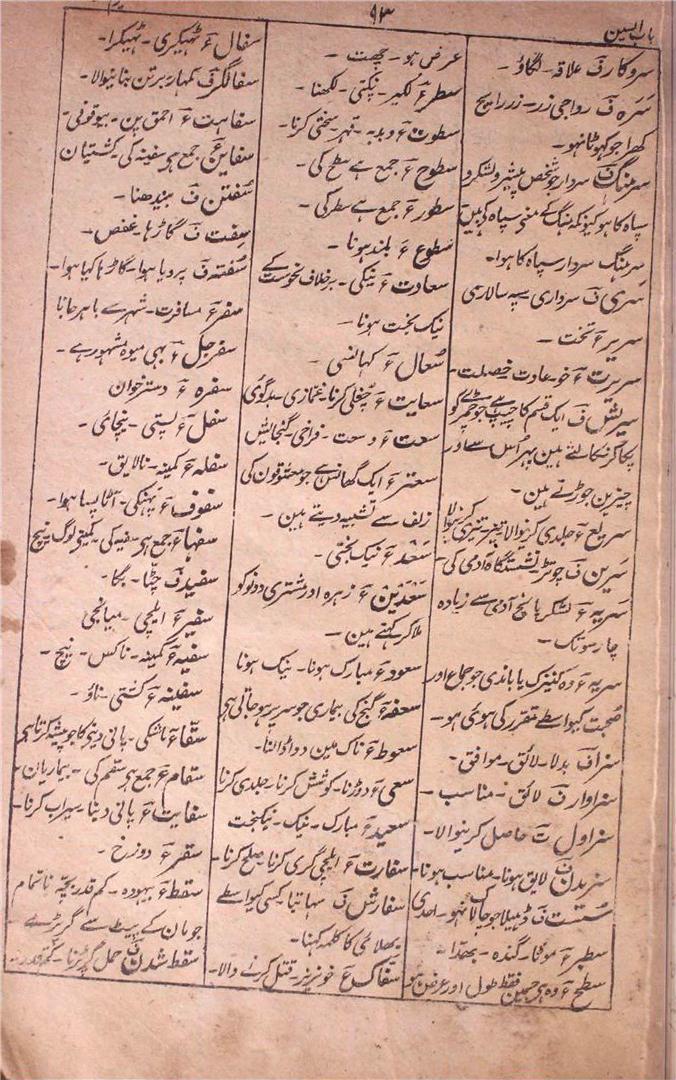 باب السین
۹۳
سروکار ف علاقہ۔ لگاؤ۔
سَرَہ ف رواجی زر۔ زر رایج
کھرا جو کھوٹا نہو۔
سرہنگ ف سردار جو شخص پیشرو لشکر و
سپاہ کا ہو کیونکہ ہنگ کے معنی سپاہ کے ہیں
سرہنگ سردار سپاہ کا ہوا۔
سَری ف سرداری۔ سپہ سالاری
سریر ء تخت۔
سریرت ء خو۔ عادت۔ خصلت۔
سیریشل ف ایک قسم کا چیپ ہے جو چمڑے کو
پکا کر نکالتے ہین پھر اُس سے اور
چیزین جوڑتے ہین۔
سریع ء جلدی کرنیوالا۔ تیز۔ تیزی کرنیوالا
سُرین ف چوتڑ۔ نشستگاہ آدمی کی۔
سَریہ ء لشکر پانچ آدمی سے زیادہ
چار سو تک۔
سریہ ء وہ کنیزک یا باندی جو جماع اور
صحبت کیواسطے مقرر کی ہوئی ہو۔
سزا ف بدلا۔ لائق۔ موافق۔
سزاوار ف لائق۔ مناسب۔
سزاول ت حاصل کرنیوالا۔
سزیدن ف لایق ہونا۔ مناسب ہونا۔
سُست ف ڈھیلا جو چالاک نہو۔ احدی
سطبر ء موٹا۔ گندہ۔ بھدا۔
سطح ء وہ ہے جسمین فقط طول اور عرض ہو
عرض ہو۔ چھت۔
سطر ء لکیر۔ پنکتی۔ لکھنا۔
سطوت ء دبدبہ۔ قہر۔ سختی کرنا۔
سطوح ء جمع ہے سطح کی۔
سطور ء جمع ہے سطر کی۔
سُطوع ء بلند ہونا۔
سعادت ء نیکی۔ برخلاف نحوست کے
نیک بخت ہونا۔
سُعال ء کھانسی۔
سعایت ء چغلی کرنا۔ غمازی۔ بدگوئی
سعت ء وسعت۔ فراخی۔ گنجائش
سعتر ء ایک گھانس ہے جو معشوقون کی
زلف سے تشبیہ دیتے ہین۔
سَعْد ء نیک بختی۔
سَعْدَین ء زہرہ اور مشتری دونو کو
ملا کر کہتے ہین۔
سعود ء مبارک ہونا۔ نیک ہونا
سعفہ ء گنج کی بیماری جو سر پر ہو جاتی ہی
سعوط ء ناک مین دوا ڈالنا۔
سعی ء دوڑنا۔ کوشش کرنا۔ جلدی کرنا
سعید ء مبارک۔ نیک۔ نیکبخت
سفارت ء ایلچی گری کرنا۔ صلح کرنا۔
سفارش ف سہایتا۔ کسی کیواسطے
بھلائی کا کلمہ کہنا۔
سفّاک ع خونریز۔ قتل کرنے والا۔
سفال ء ٹھیکری۔ ٹھیکرا۔
سفالگر ف کمہار۔ برتن بنانیوالا۔
سفاہت ء احمق پن۔ بیوقوفی۔
سفاین ع جمع ہے سفینہ کی۔ کشتیان
سُفتن ف بیندھنا۔
سِفت ف گاڑھا۔
سُفتہ ف پرویا ہوا۔ گاڑھا کیا ہوا۔
سفر ء مسافرت۔ شہر سے باہر جانا
سفرجل ء بہی میوہ مشہور ہے۔
سفرہ ء دسترخوان
سفل ء پستی۔ نیچائی۔
سفلہ ء کمینہ۔ نالایق۔
سفوف ء پھنکی۔ آٹا پسا ہوا۔
سفہا ء جمع ہے سفیہ کی۔ کمینی لوگ۔ نیچ
سفید ف چٹا۔ بگا۔
سفیر ء ایلچی۔ میانجی
سفیہ ء کمینہ۔ ناکس۔ نیچ۔
سفینہ ء کشتی۔ ناؤ۔
سقّا ء ماشکی۔ پانی دینے کا جو پیشہ کرتا ہی
سقام ء جمع ہے سقم کی۔ بیماریان۔
سقایت ء پانی دینا۔ سیراب کرنا۔
سقر ء دوزخ۔
سقط ء بیہودہ۔ کم قدر۔ بچہ ناتمام
جو مان کے پیٹ سے گر پڑے۔
سقط شدن ف حمل گر پڑنا۔